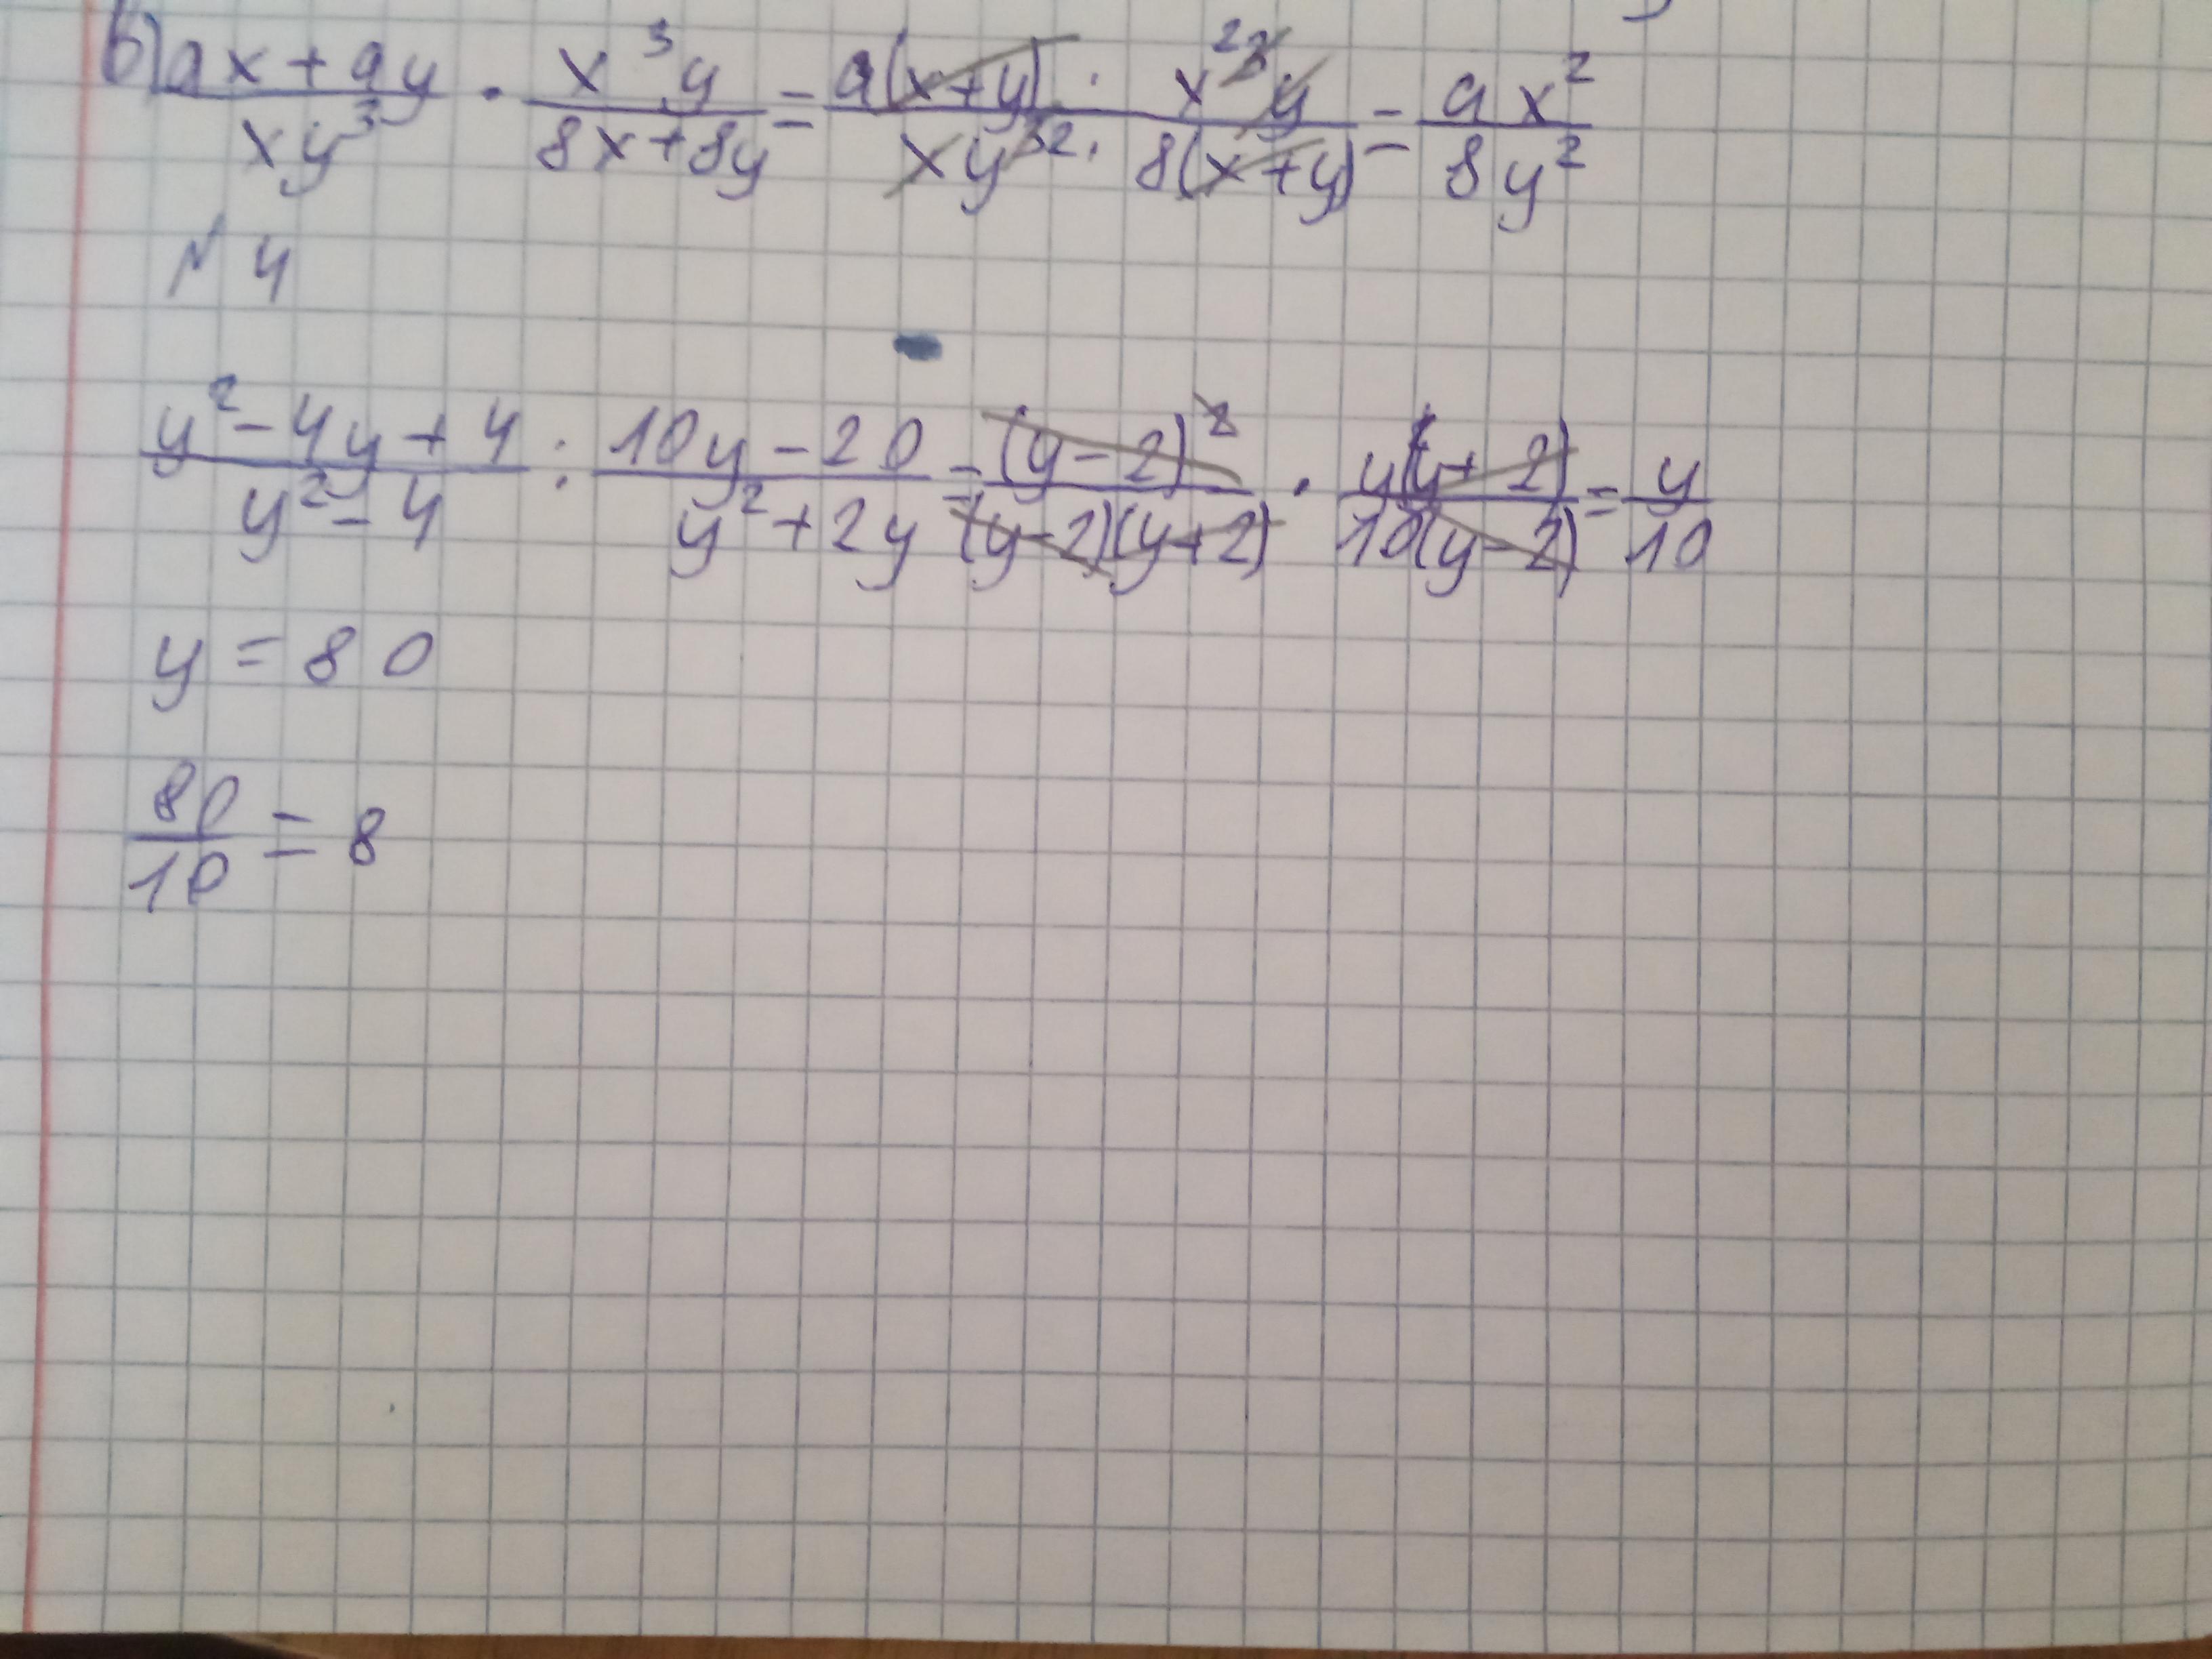 б) (ax+ay)/(xy³) · (x³y)/(8x+8y) = (a(x+y) · x³ ²y)/(xy³ ² · 8(x+y)) = (ax²)/(8y²)
№ 4
(y²-4y+4)/(y²-4) : (10y-20)/(y²+2y) = (y-2)²/((y-2)(y+2)) · (y(y+2))/(10(y-2)) = y/10
y = 80
80/10 = 8